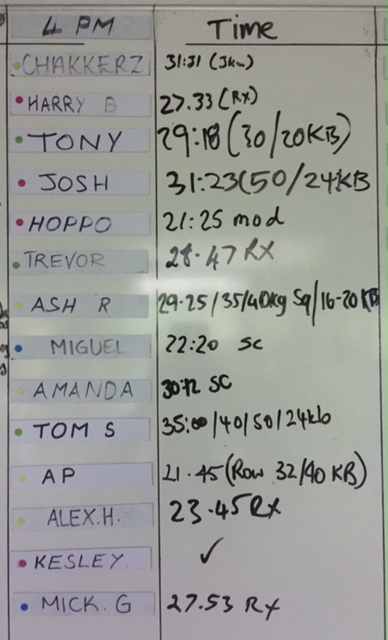 4 PM Time
CHAKKERZ 31:31 (3km)
HARRY B 27.33 (RX)
TONY 29:18 (30/20KB)
JOSH 31:23(50/24KB
HOPPO 21:25 mod
TREVOR 28.47 RX
ASH R 29.25/35/40kg Sq/16-20KB
MIGUEL 22:20 SC
AMANDA SC
TOM S 35:00/40/50/24kb
AP 21.45 (Row 32/40 KB)
ALEX.H. 23.45 RX
KESLEY. ✓
MICK. G 27.53 RX